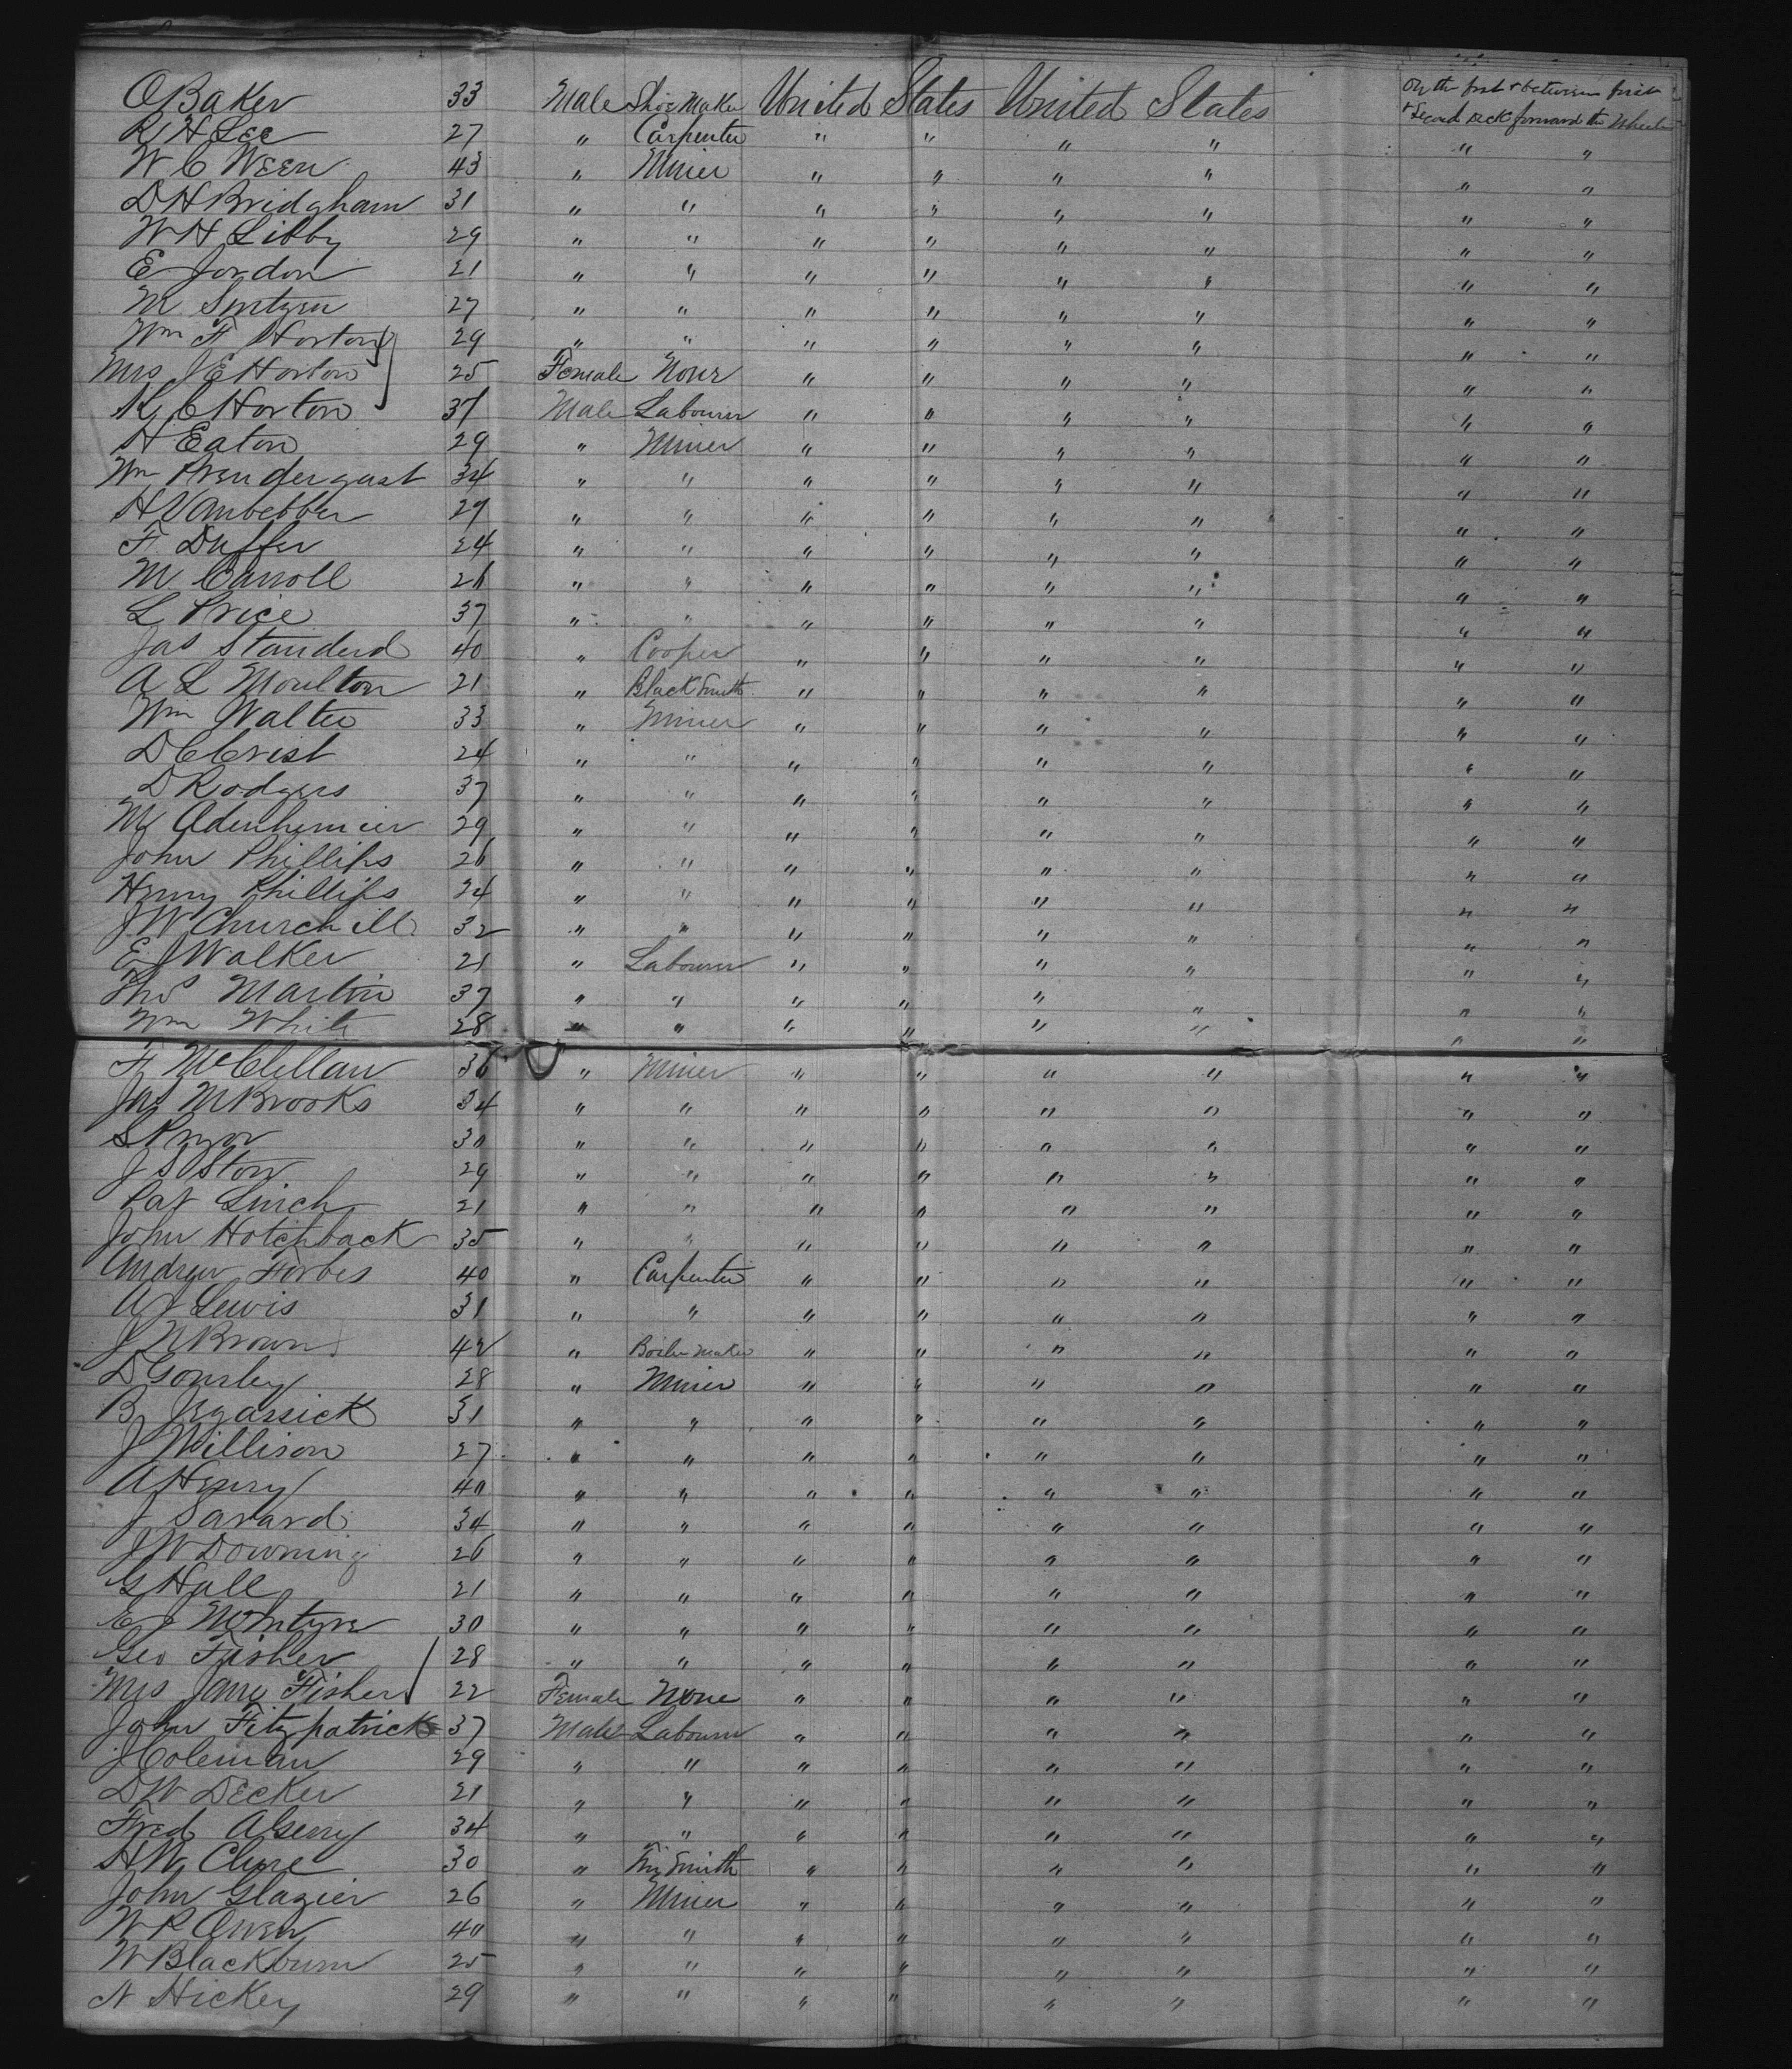 O Baker 33 Male Shoe Maker United States United States On the first & between first
& Second deck forward the Wheels
R H Lee 27 " Carpenter " " " " " "
W C Ween 43 " Miner " " " " " "
D H Bridgham 31 " " " " " " " "
W H Libby 29 " " " " " " " "
E Jordon 21 " " " " " " " "
M 27 " " " " " " " "
Wm F Horton 29 " " " " " " " "
Mrs J E Horton 25 Female None " " " " " "
K C Horton 37 Male Labourer " " " " " "
H Eaton 29 " Miner " " " " " "
Wm Prendergast 34 " " " " " " " "
H Vanbebber 29 " " " " " " " "
F. Duffer 24 " " " " " " " "
M Carroll 26 " " " " " " " "
L Price 37 " " " " " " " "
Jas Standerd 40 " Cooper " " " " " "
A L Moulton 21 " Black Smith " " " " " "
Wm Walter 33 " Miner " " " " " "
D C Crist 24 " " " " " " " "
D Rodgers 37 " " " " " " " "
M Adenhemier 29 " " " " " " " "
John Phillips 26 " " " " " " " "
Henry Phillips 24 " " " " " " " "
J W Churchill 32 " " " " " " " "
E J Walker 21 " Labourer " " " " " "
Thos Martin 37 " " " " " " " "
Wm White 28 " " " " " " " "
F McClellan 36 " Miner " " " " " "
Jas M Brooks 34 " " " " " " " "
S Pryor 30 " " " " " " " "
J S Ston 29 " " " " " " " "
Pat Linch 21 " " " " " " " "
John Hotchback 35 " " " " " " " "
Andrew Forbes 40 " Carpenter " " " " " "
A J Lewis 31 " " " " " " " "
J N Brown 42 " Boiler Maker " " " " " "
D Gonsley 28 " Miner " " " " " "
B Jegassick 31 " " " " " " " "
J Willison 27 " " " " " " " "
A Henry 40 " " " " " " " "
J Savard 34 " " " " " " " "
J W Downing 26 " " " " " " " "
G Hall 21 " " " " " " " "
E J McIntyre 30 " " " " " " " "
Geo Fisher 28 " " " " " " " "
Mrs Jane Fisher 22 Female None " " " " " "
John Fitzpatrick 37 Male Labourer " " " " " "
J Coleman 29 " " " " " " " "
D W Decker 21 " " " " " " " "
Fred 34 " " " " " " " "
H W Clure 30 " Tin Smith " " " " " "
John Glazier 26 " Miner " " " " " "
W P Owen 40 " " " " " " " "
W Blackburn 25 " " " " " " " "
N Hickey 29 " " " " " " " "